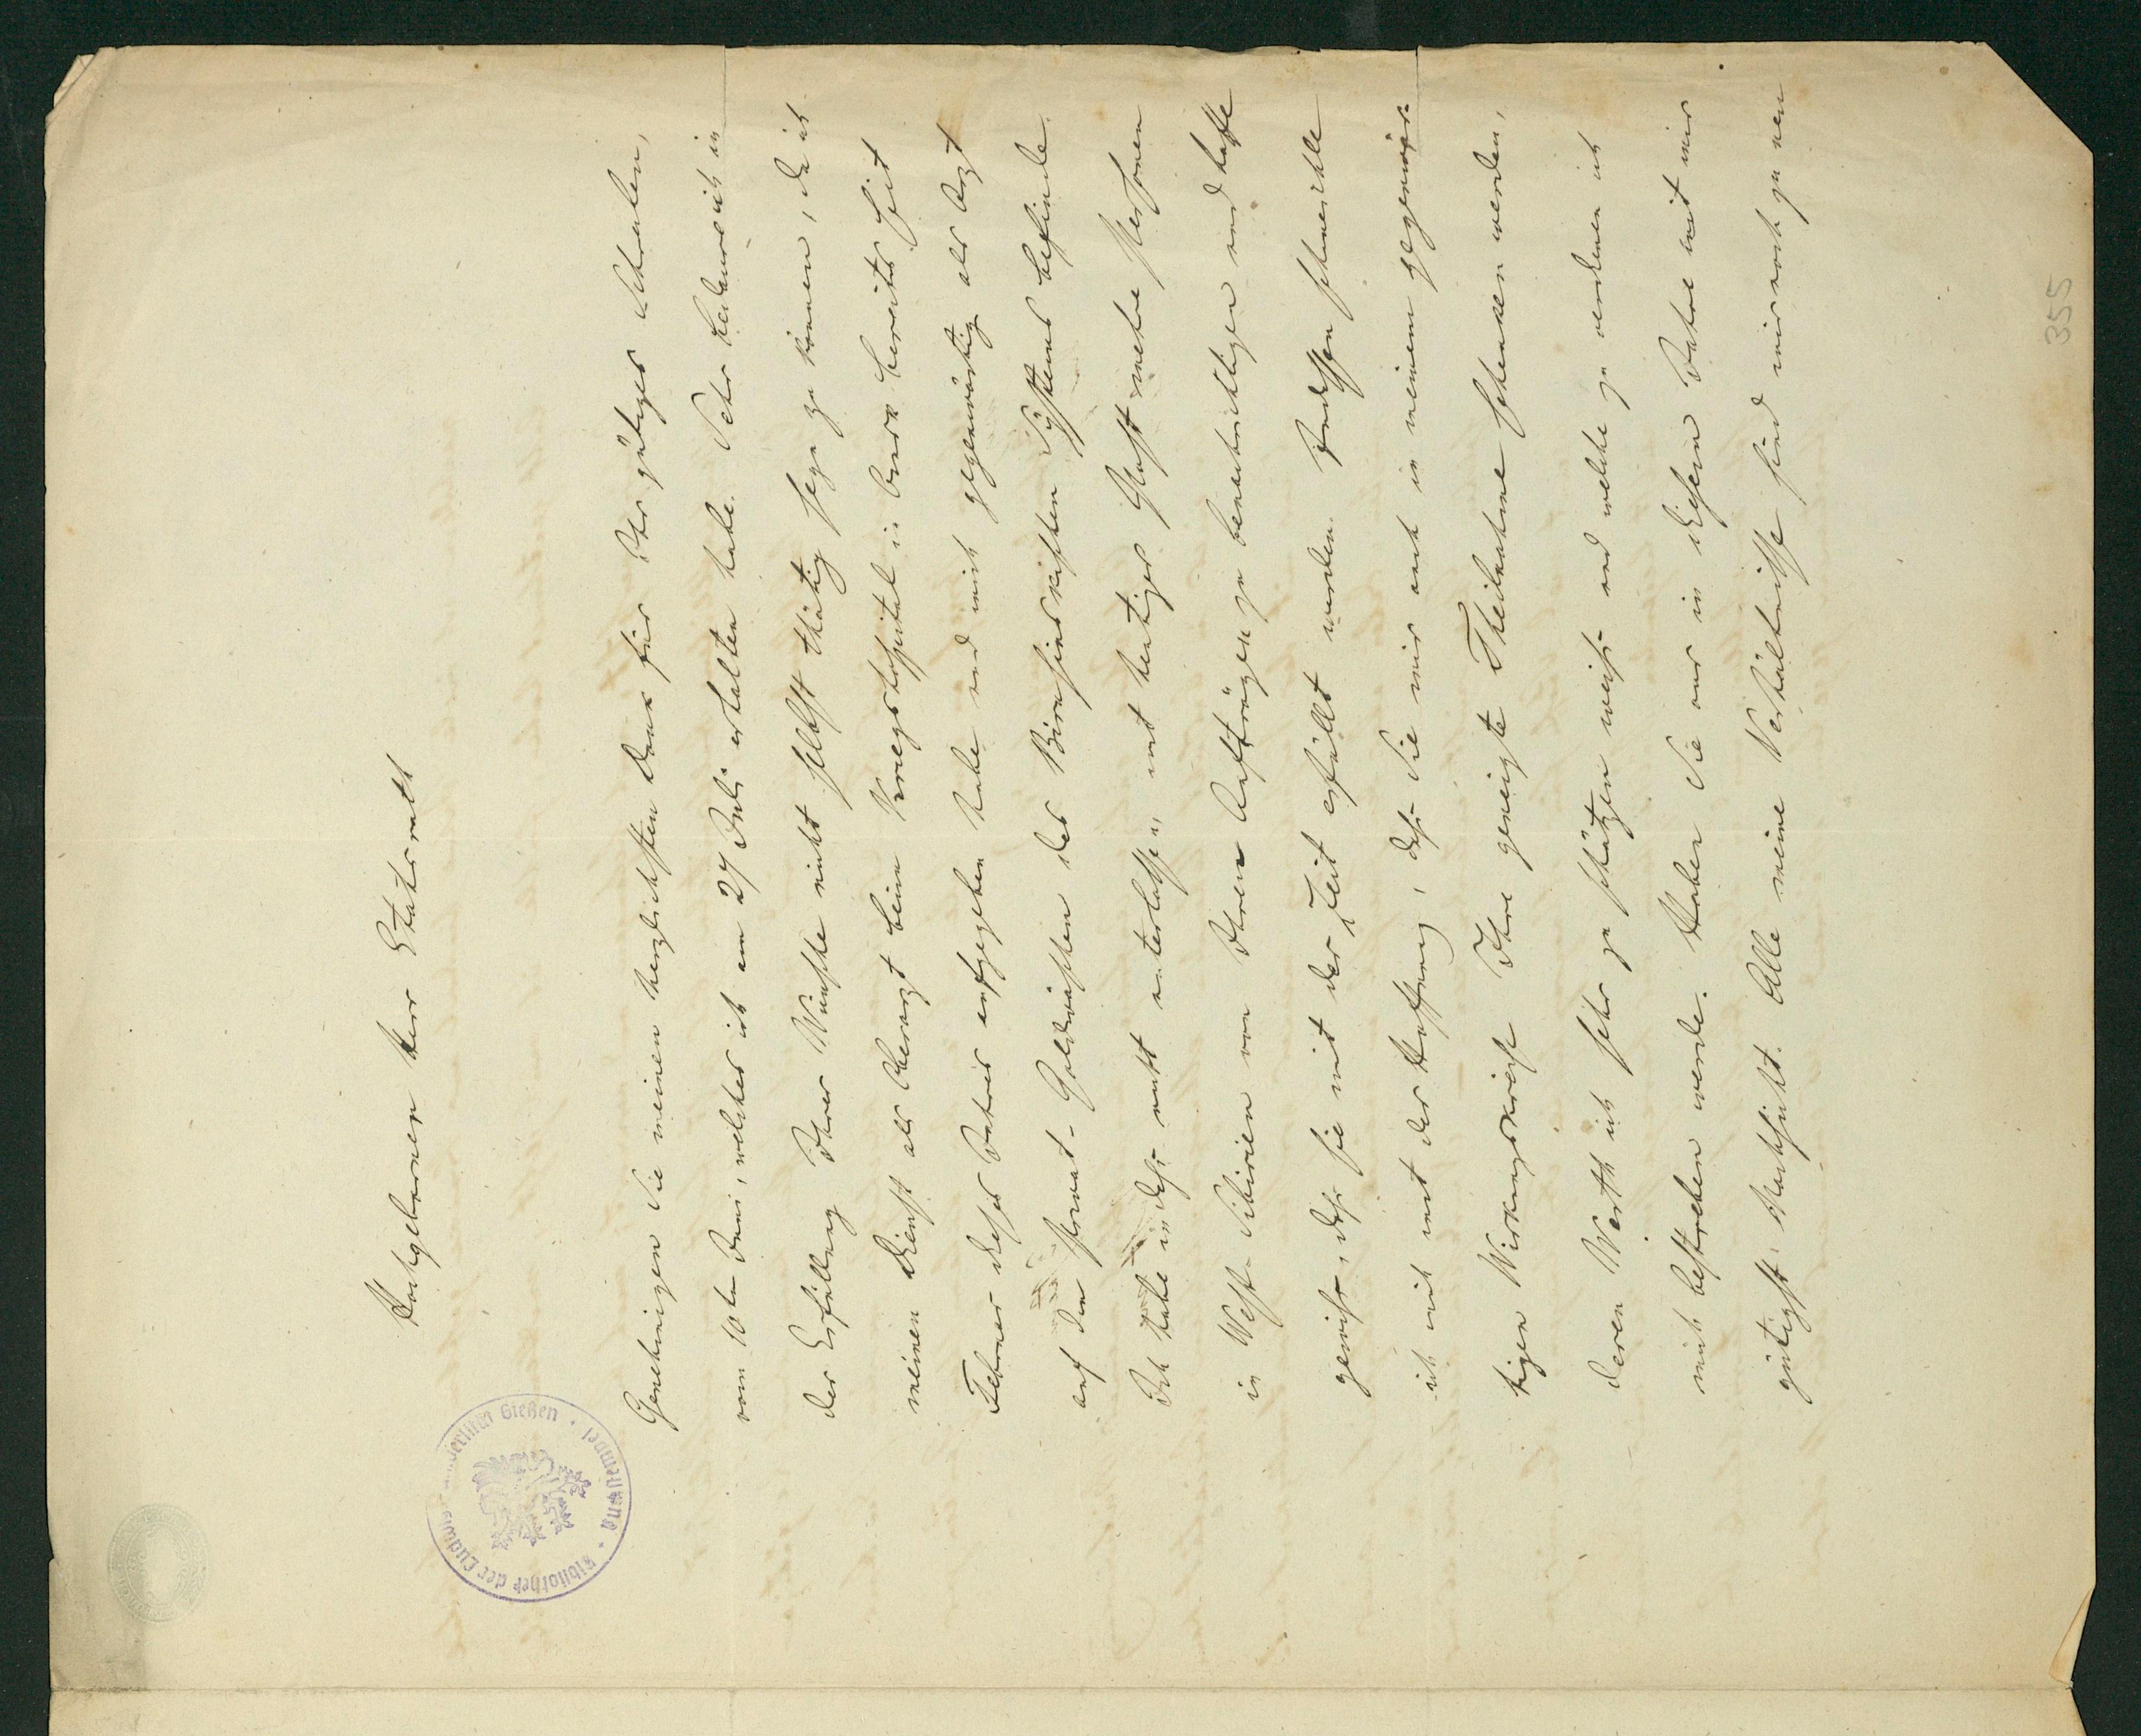 Hochgeborner Herr Etatsrath
Genehmigen Sie meinen herzlichsten Dank für Ihr gütiges Schreiben,
vom 10ten Juni, welches ich am 27 Juli erhalten habe. Sehr bedaure ich in
der Erfüllung Ihrer Wünsche nicht selbst thätig seyn zu können, da ich
meinen Dienst als Oberarzt beim Kriegshospital in Omsk bereits seit
Februar dieses Jahres aufgegeben habe und mich gegenwärtig als Arzt
auf den privat-Goldwäschen des Birusinskischen Systems befinde.
Ich habe indeß nicht unterlassen, mit heutiger Post mehre Personen
in West-Sibirien von Ihren Aufträgen zu benachrichtigen und hoffe
gewiß, daß sie mit der Zeit erfüllt werden. Indessen schmeichle
ich mich mit der Hoffnung, daß Sie mir auch in meinem gegenwär-
tigen Wirkungskreise Ihre geneigte Theilnahme schenken werden,
deren Werth ich sehr zu schätzen weiß und welche zu verdienen ich
mich bestreben werde. Haben Sie nur in diesem Jahre mit mir
gütigst Nachsicht. Alle meine Verhältnisse sind mir noch zu neu
355
Bibliothek der Ludwigs-Universität Gießen · Naumannianum